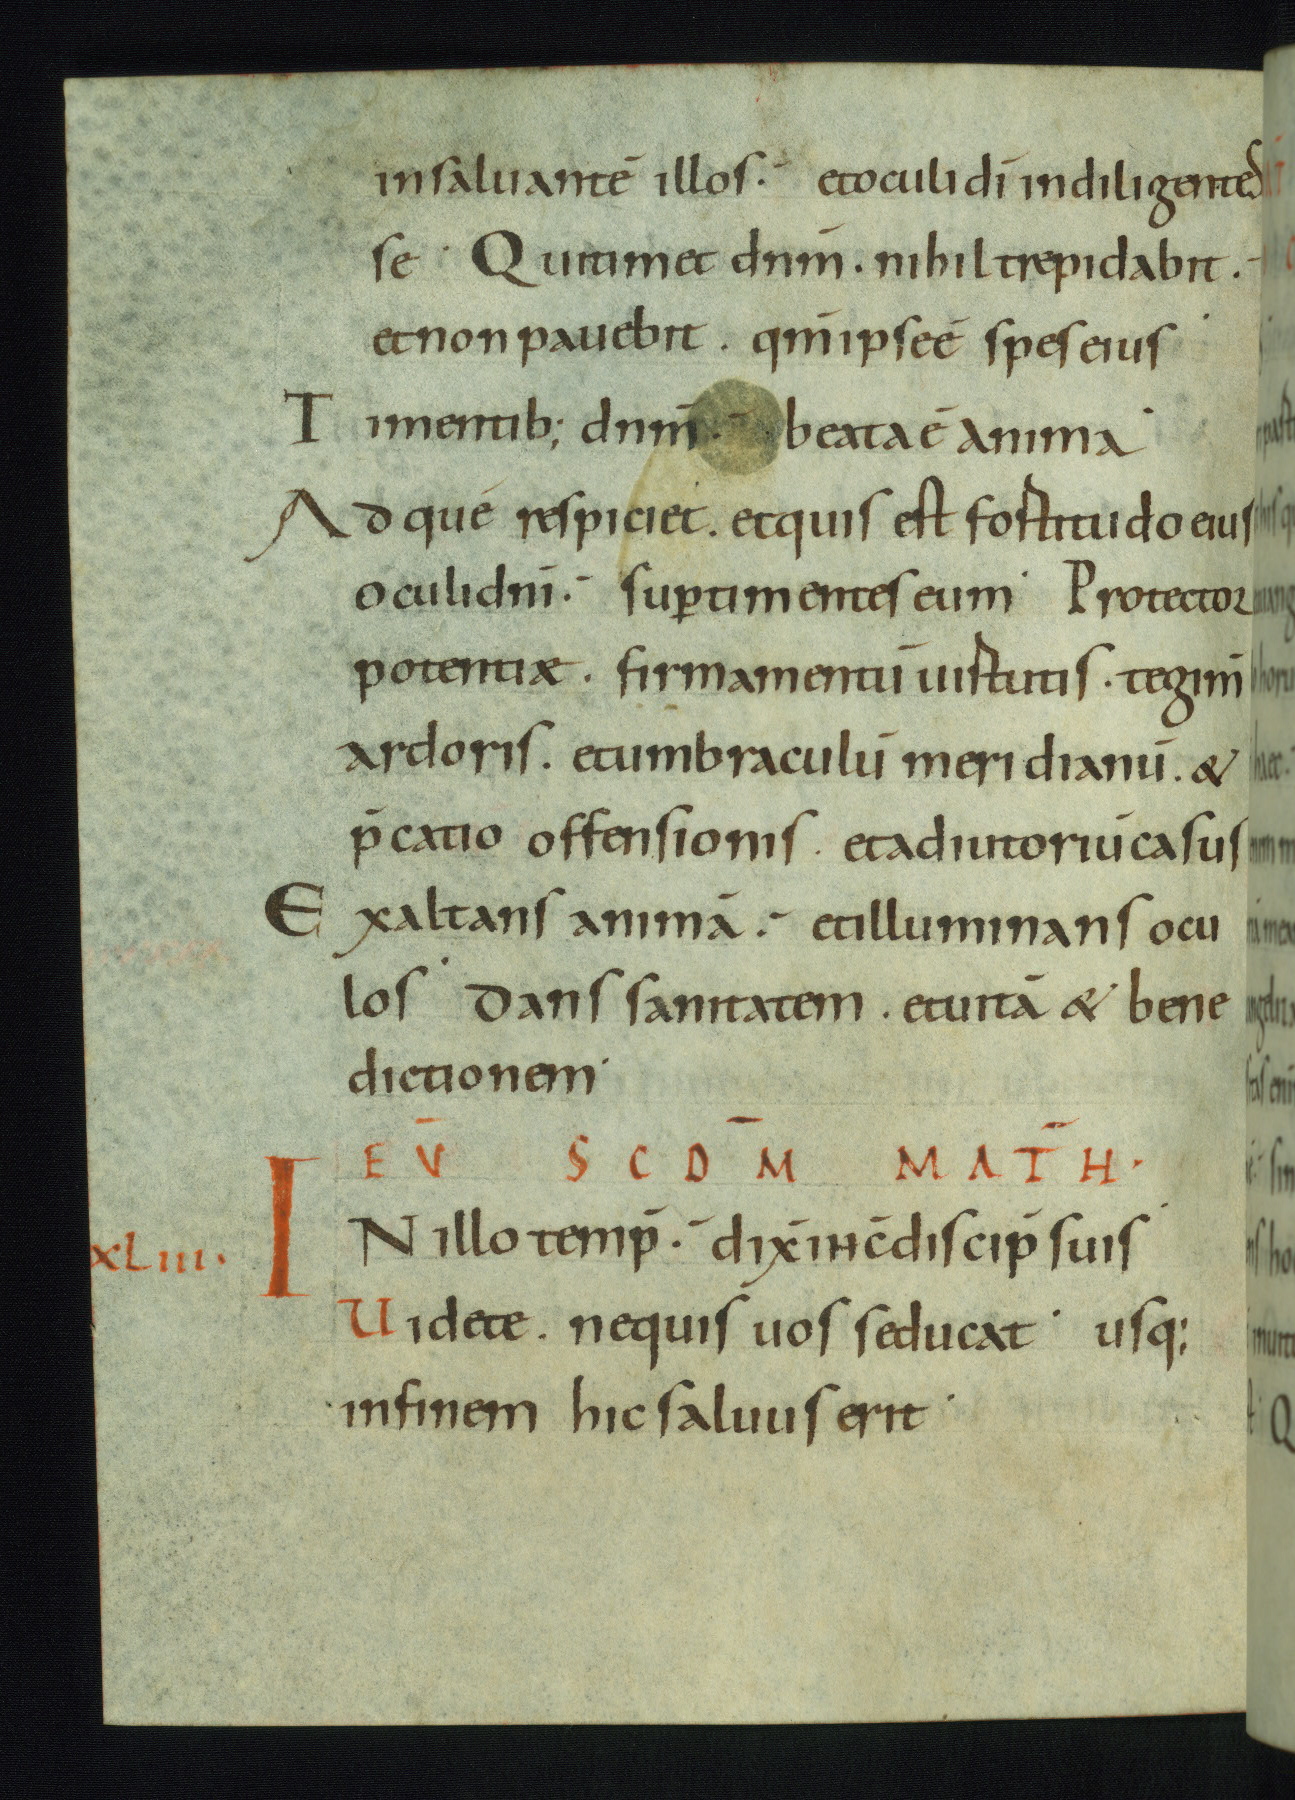 insaluantē illos·̄ etoculi dī indiligented
se · Quitimet dnm̄. nihil trepidabit.
etnonpauebit. qm̄ ipseē spes eius ·
Timentib; dnm̄·̄ beataē anima ·
Adquē respiciet. etquis est fortitudo eius
oculidnī·̄ sup̱timentes eum · Protector
potentiæ. firmamentū uirtutis. tegim̄
ardoris. etumbraculū meridianū. &
p̄catio offensionis. etadiutoriū casus
Exaltans animā·̄ etilluminans ocu
los · Dans sanitatem. etuitā & bene
dictionem ·
EV̄ SCDM̄ MATH̄·
XLIII·
INillo temp̄·̄ dix̄ ih̄c̄ discip̄ suis ·
Uidete. nequis uos seducat · usq;
infinem hic saluus erit ·